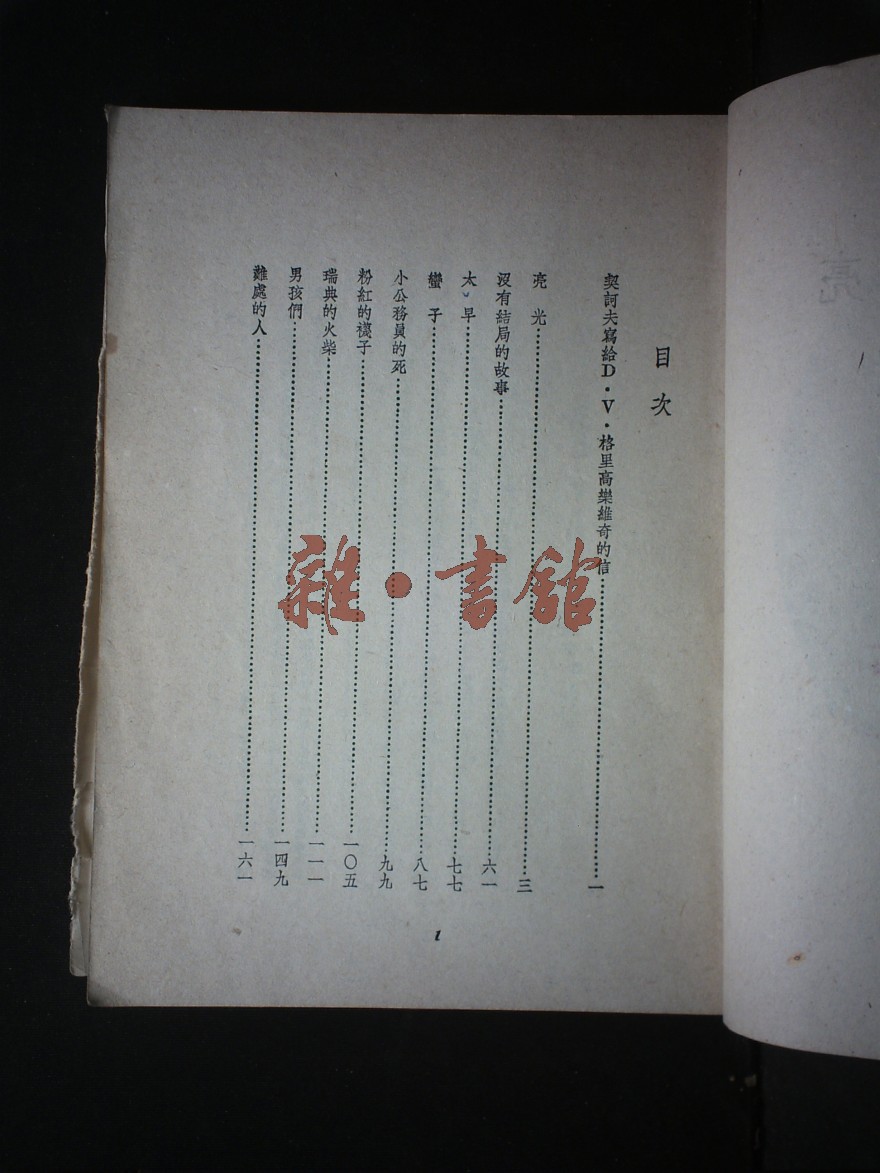 目次
契訶夫寫給D·V·格里高樂維奇的信……一
亮光……三
沒有結局的故事……六一
太早……七七
蠻子……八七
小公務員的死……九九
粉紅的襪子……一〇五
瑞典的火柴……一一一
男孩們……一四九
難處的人……一六一
1
雜·書館
亮